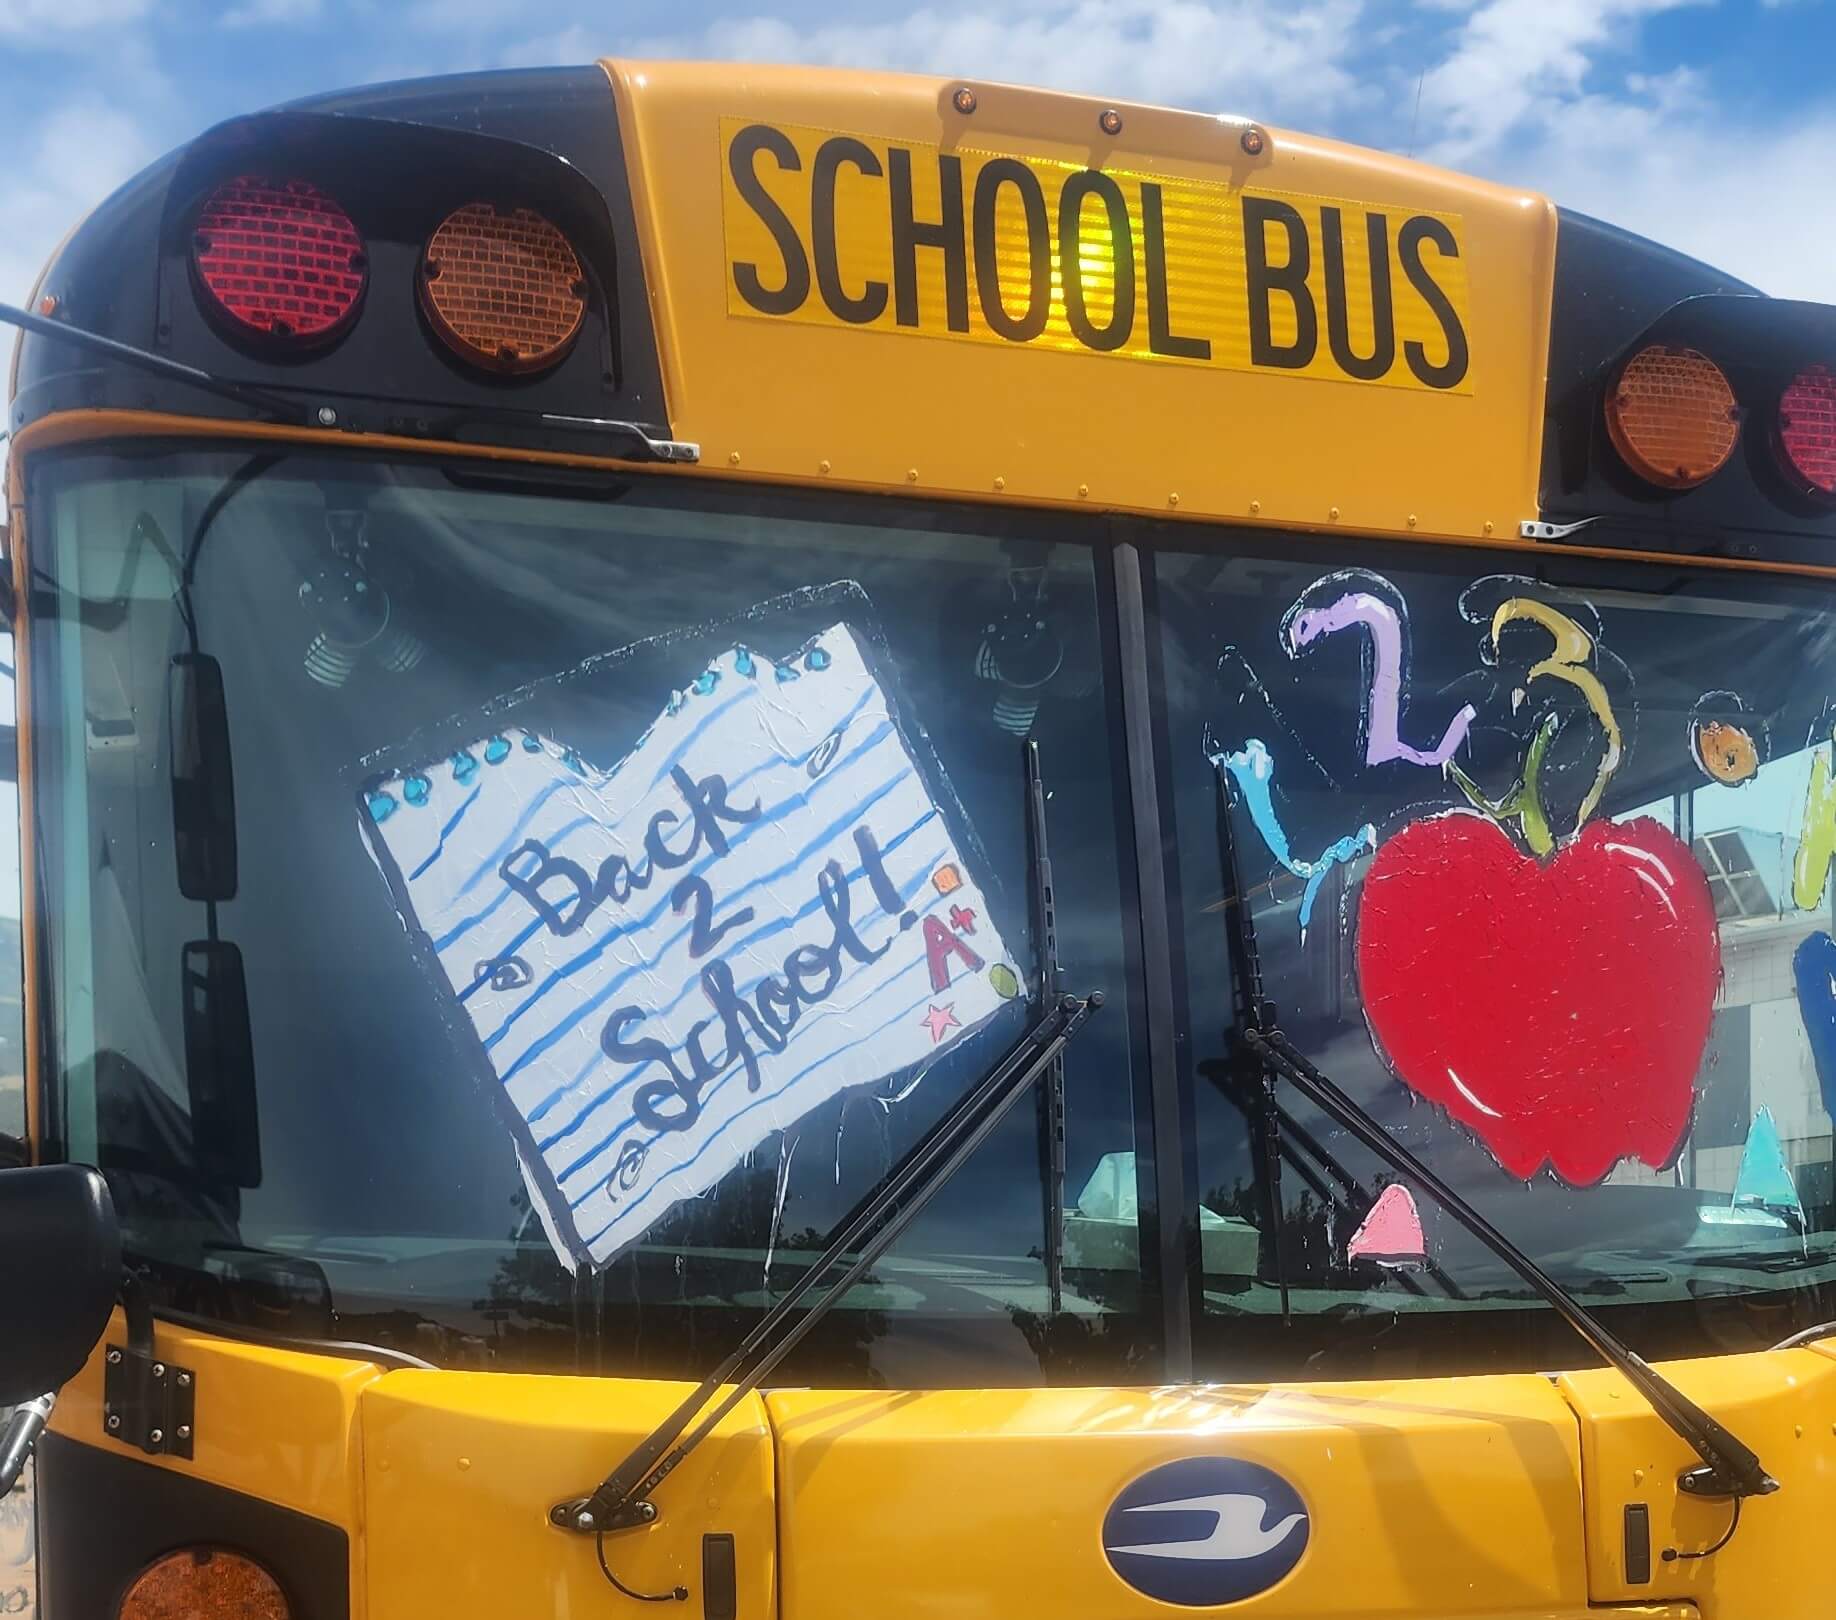 SCHOOL BUS
Back
2
School!
A+
123